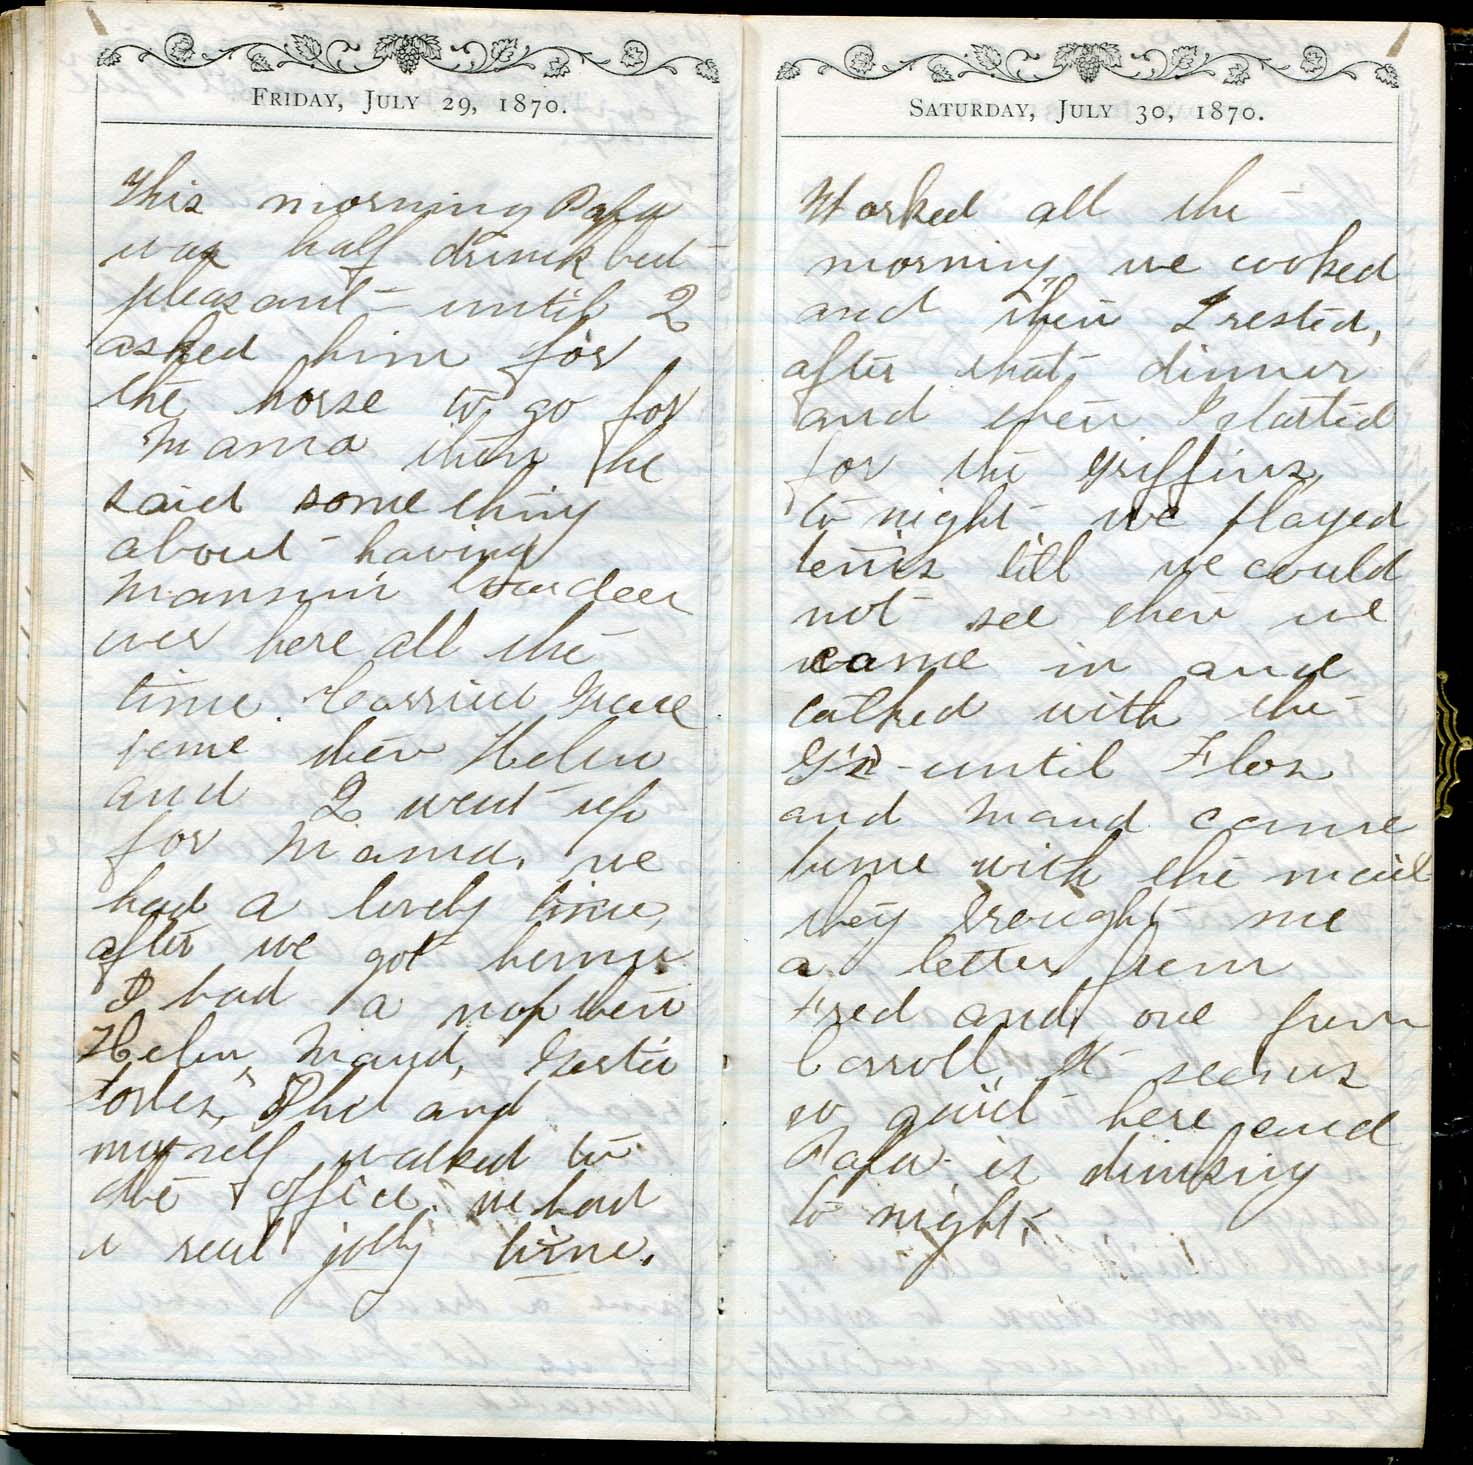 FRIDAY, JULY 29, 1870.
This morning Papa
was half drunk but
pleasant - until I
asked him for
the horse to go for
Mama then he
said some thing
about - having
over here all the
time. Carried Grace
home then Helen
and I went up
for Mama. we
had a lovely time,
after we got home
I had a nap then
Helen, Maud, Gertie
Forbes, Phil and
myself walked to
the office. we had
a real jolly time.
SATURDAY, JULY 30, 1870.
Worked all the
morning, we cooked
and then I rested,
after that dinner
and then I started
for the Griffins,
to night - we played
tenis till we could
not see then we
came in and
talked with the
G's - until Flos
and Maud came
home with the mail
they brought me
a letter from
Fred and one from
Carroll. It seems
so good here and
Papa is drinking
to night.